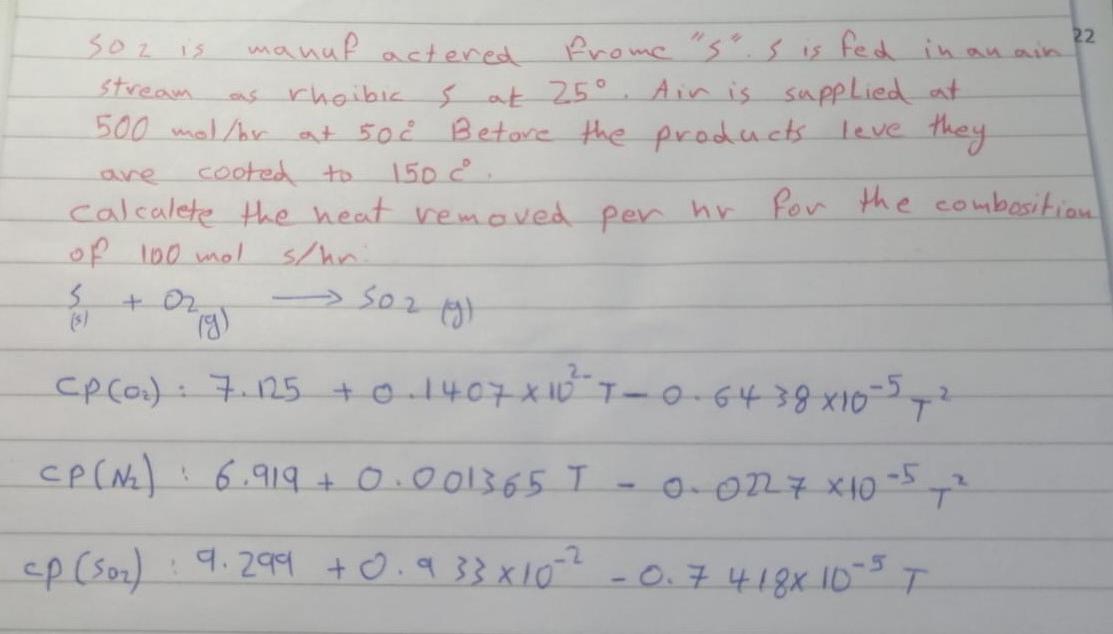 22
SO2 is manuf actered frome "S". S is fed in an ain
stream as rhoibic S at 25°. Air is supplied at
500 mol/hr at 50c° Betore the products leve they
are cooted to 150 c°.
calcalete the heat removed per hr for the combosition
of 100 mol s/hr.
S(s) + O2(g) → SO2 (g)
CP(O2) : 7.125 + 0.1407 × 10²⁻ T - 0.6438 × 10⁻⁵ T²
CP(N2) : 6.919 + 0.001365 T - 0.0227 × 10⁻⁵ T²
CP(SO2) : 9.299 + 0.933 × 10⁻² - 0.7418 × 10⁻⁵ T